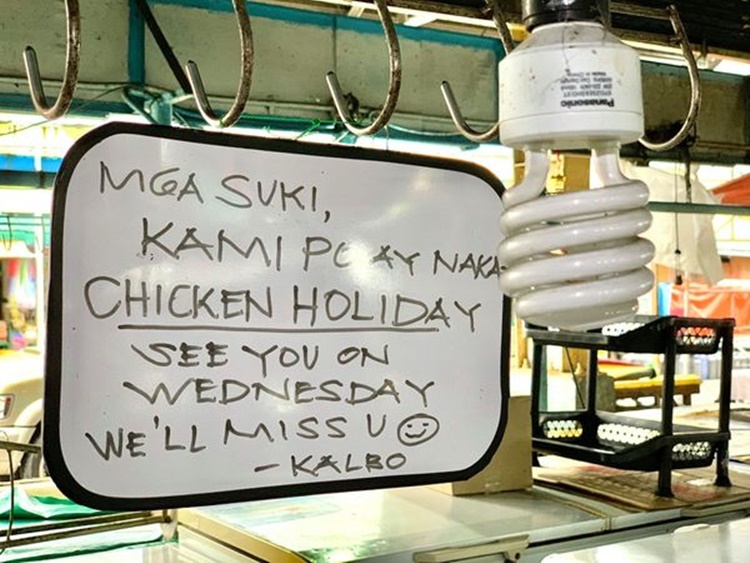 MGA SUKI,
KAMI PO AY NAKA-
CHICKEN HOLIDAY
SEE YOU ON
WEDNESDAY
WE'LL MISS U
- KALBO
Panasonic